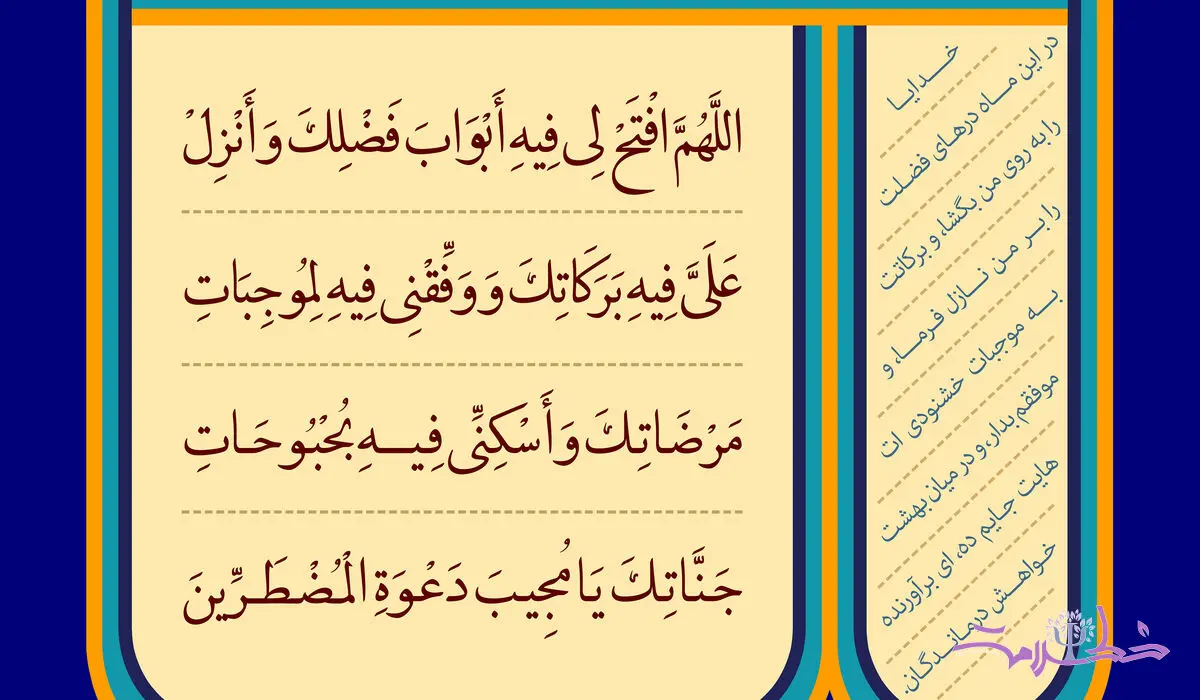 اللَّهُمَّ افْتَحْ لِی فِیهِ أَبْوَابَ فَضْلِكَ وَ أَنْزِلْ
عَلَیَّ فِیهِ بَرَكَاتِكَ وَ وَفِّقْنِی فِیهِ لِمُوجِبَاتِ
مَرْضَاتِكَ وَ أَسْكِنِّی فِیـــهِ بُحْبُوحَـاتِ
جَنَّاتِكَ یَا مُجِیبَ دَعْوَةِ الْمُضْطَـرِّینَ
خـــدایـا
در این مــاه درهـای فضـلت
را به روی من بگشا، و برکاتت
را بــر مـن نــازل فـرمــا، و
بــه موجبات خشنودی ات
موفقم بدار، و در میان بهشت
هایت جـایم ده، ای برآورنده
خـواهــش درمـانــدگـان.
خط سلامت